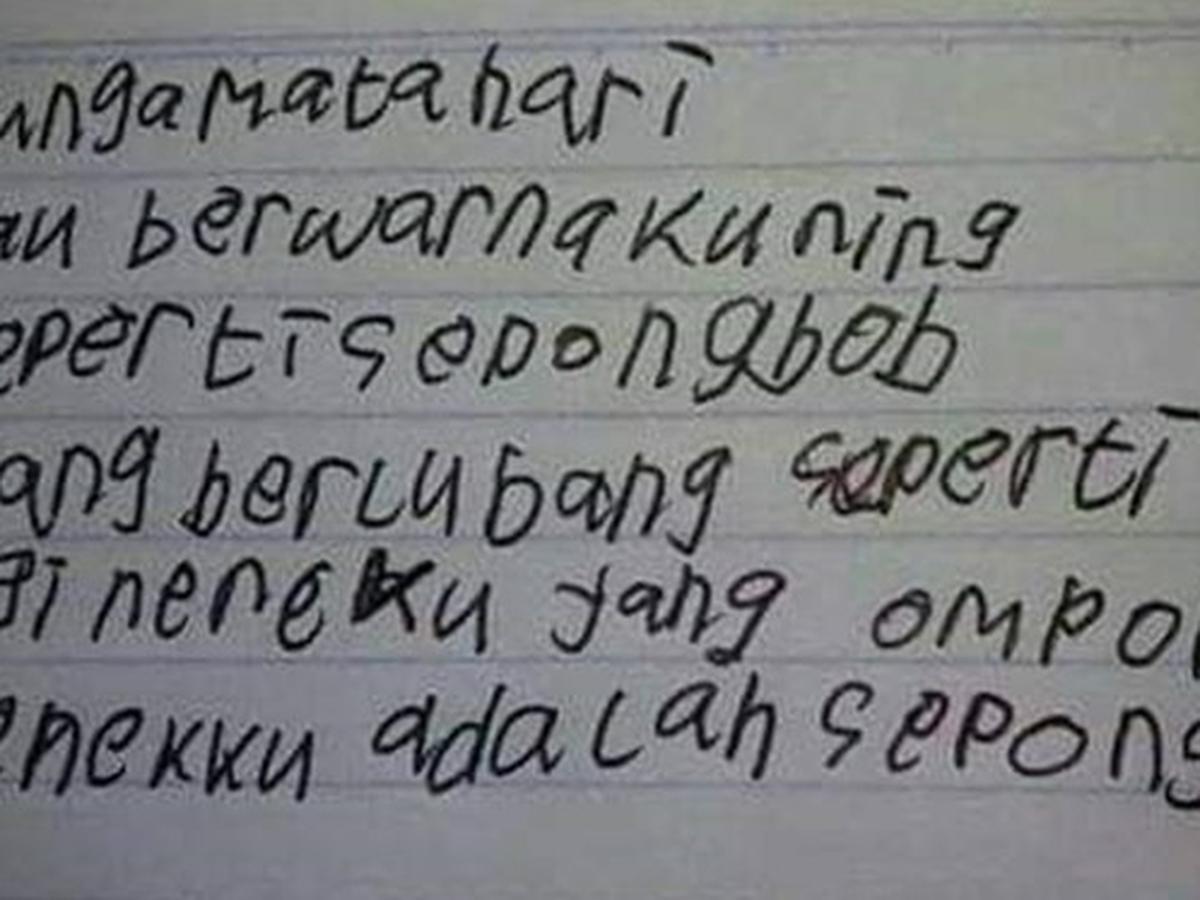 ungamatahari
au berwarna kuning
epertisepongbob
ang berlubang seperti
gi nereku yang ompo
enekku adalah sepong